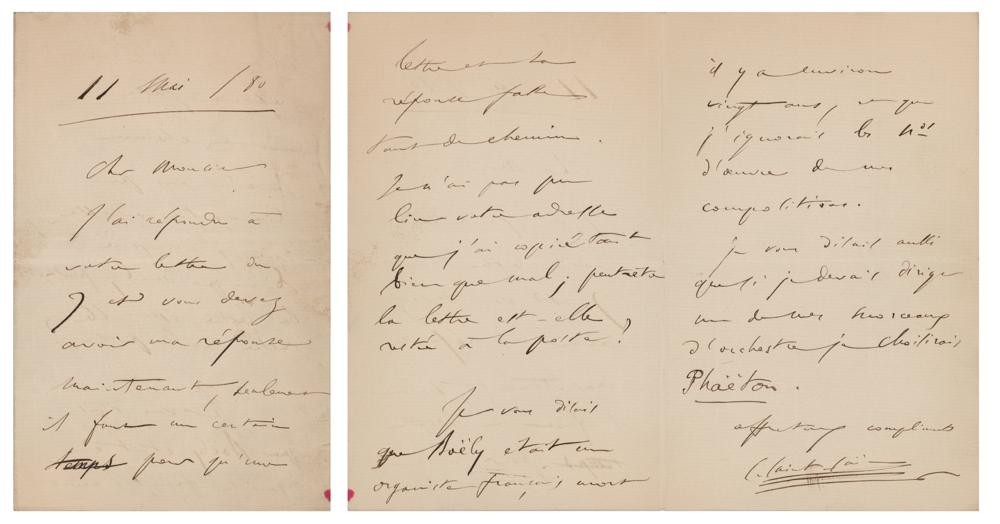 11 Mai /80
Cher Monsieur
J'ai répondu à
votre lettre du
7 et vous devez
avoir ma réponse
maintenant, seulement
il faut un certain
temps pour qu'une
lettre et sa
réponse fassent
tant de chemin.
Je n'ai pas pu
lire votre adresse
que j'ai copiée tant
bien que mal ; peut-être
la lettre est-elle
restée à la poste ?
Je vous disais
que Boëly était un
organiste français, mort
il y a environ
vingt ans, et que
j'ignorais les nos
d'œuvre de mes
compositions.
Je vous disais aussi
que si je devais diriger
un de mes morceaux
d'orchestre je choisirais
Phaëton.
affectueux compliments
C. Saint-Saëns